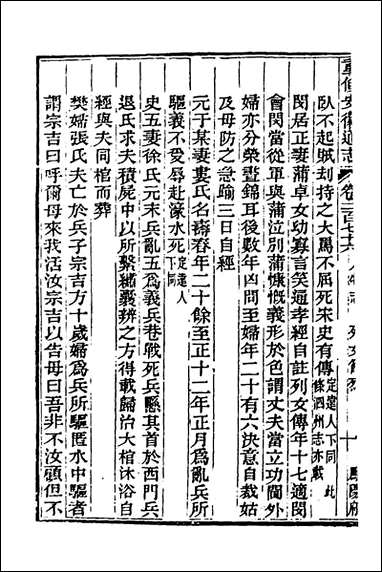 重修安徽通志 卷二百七十六 人物志 列女 節烈 十 鳳陽府
臥不起賊刦持之大罵不屈死宋史有傳 定遠人下同 此條泗州志亦載
閔居正妻蒲卓女幼寡言笑通孝經自註列女傳年十七適閔
會閔當從軍與蒲泣別蒲慷慨義形於色謂丈夫當立功閫外
婦亦分榮晝錦耳後數年凶問至婦年二十有六決意自裁姑
及母防之急踰三日自經
元于某妻婁氏名禱春年二十餘至正十二年正月爲亂兵所
驅義不受辱赴濠水死 定遠人下同
史五妻徐氏元末兵亂五爲義兵巷戰死兵懸其首於西門兵
退氏求夫積屍中以所繫繡囊辨之方得載歸治大棺沐浴自
經與夫同棺而葬
樊婦張氏夫亡於兵子宗吉方十歲婦爲兵所驅匿水中驅者
謂宗吉曰呼爾母來我活汝宗吉以告母曰吾非不汝顧但不